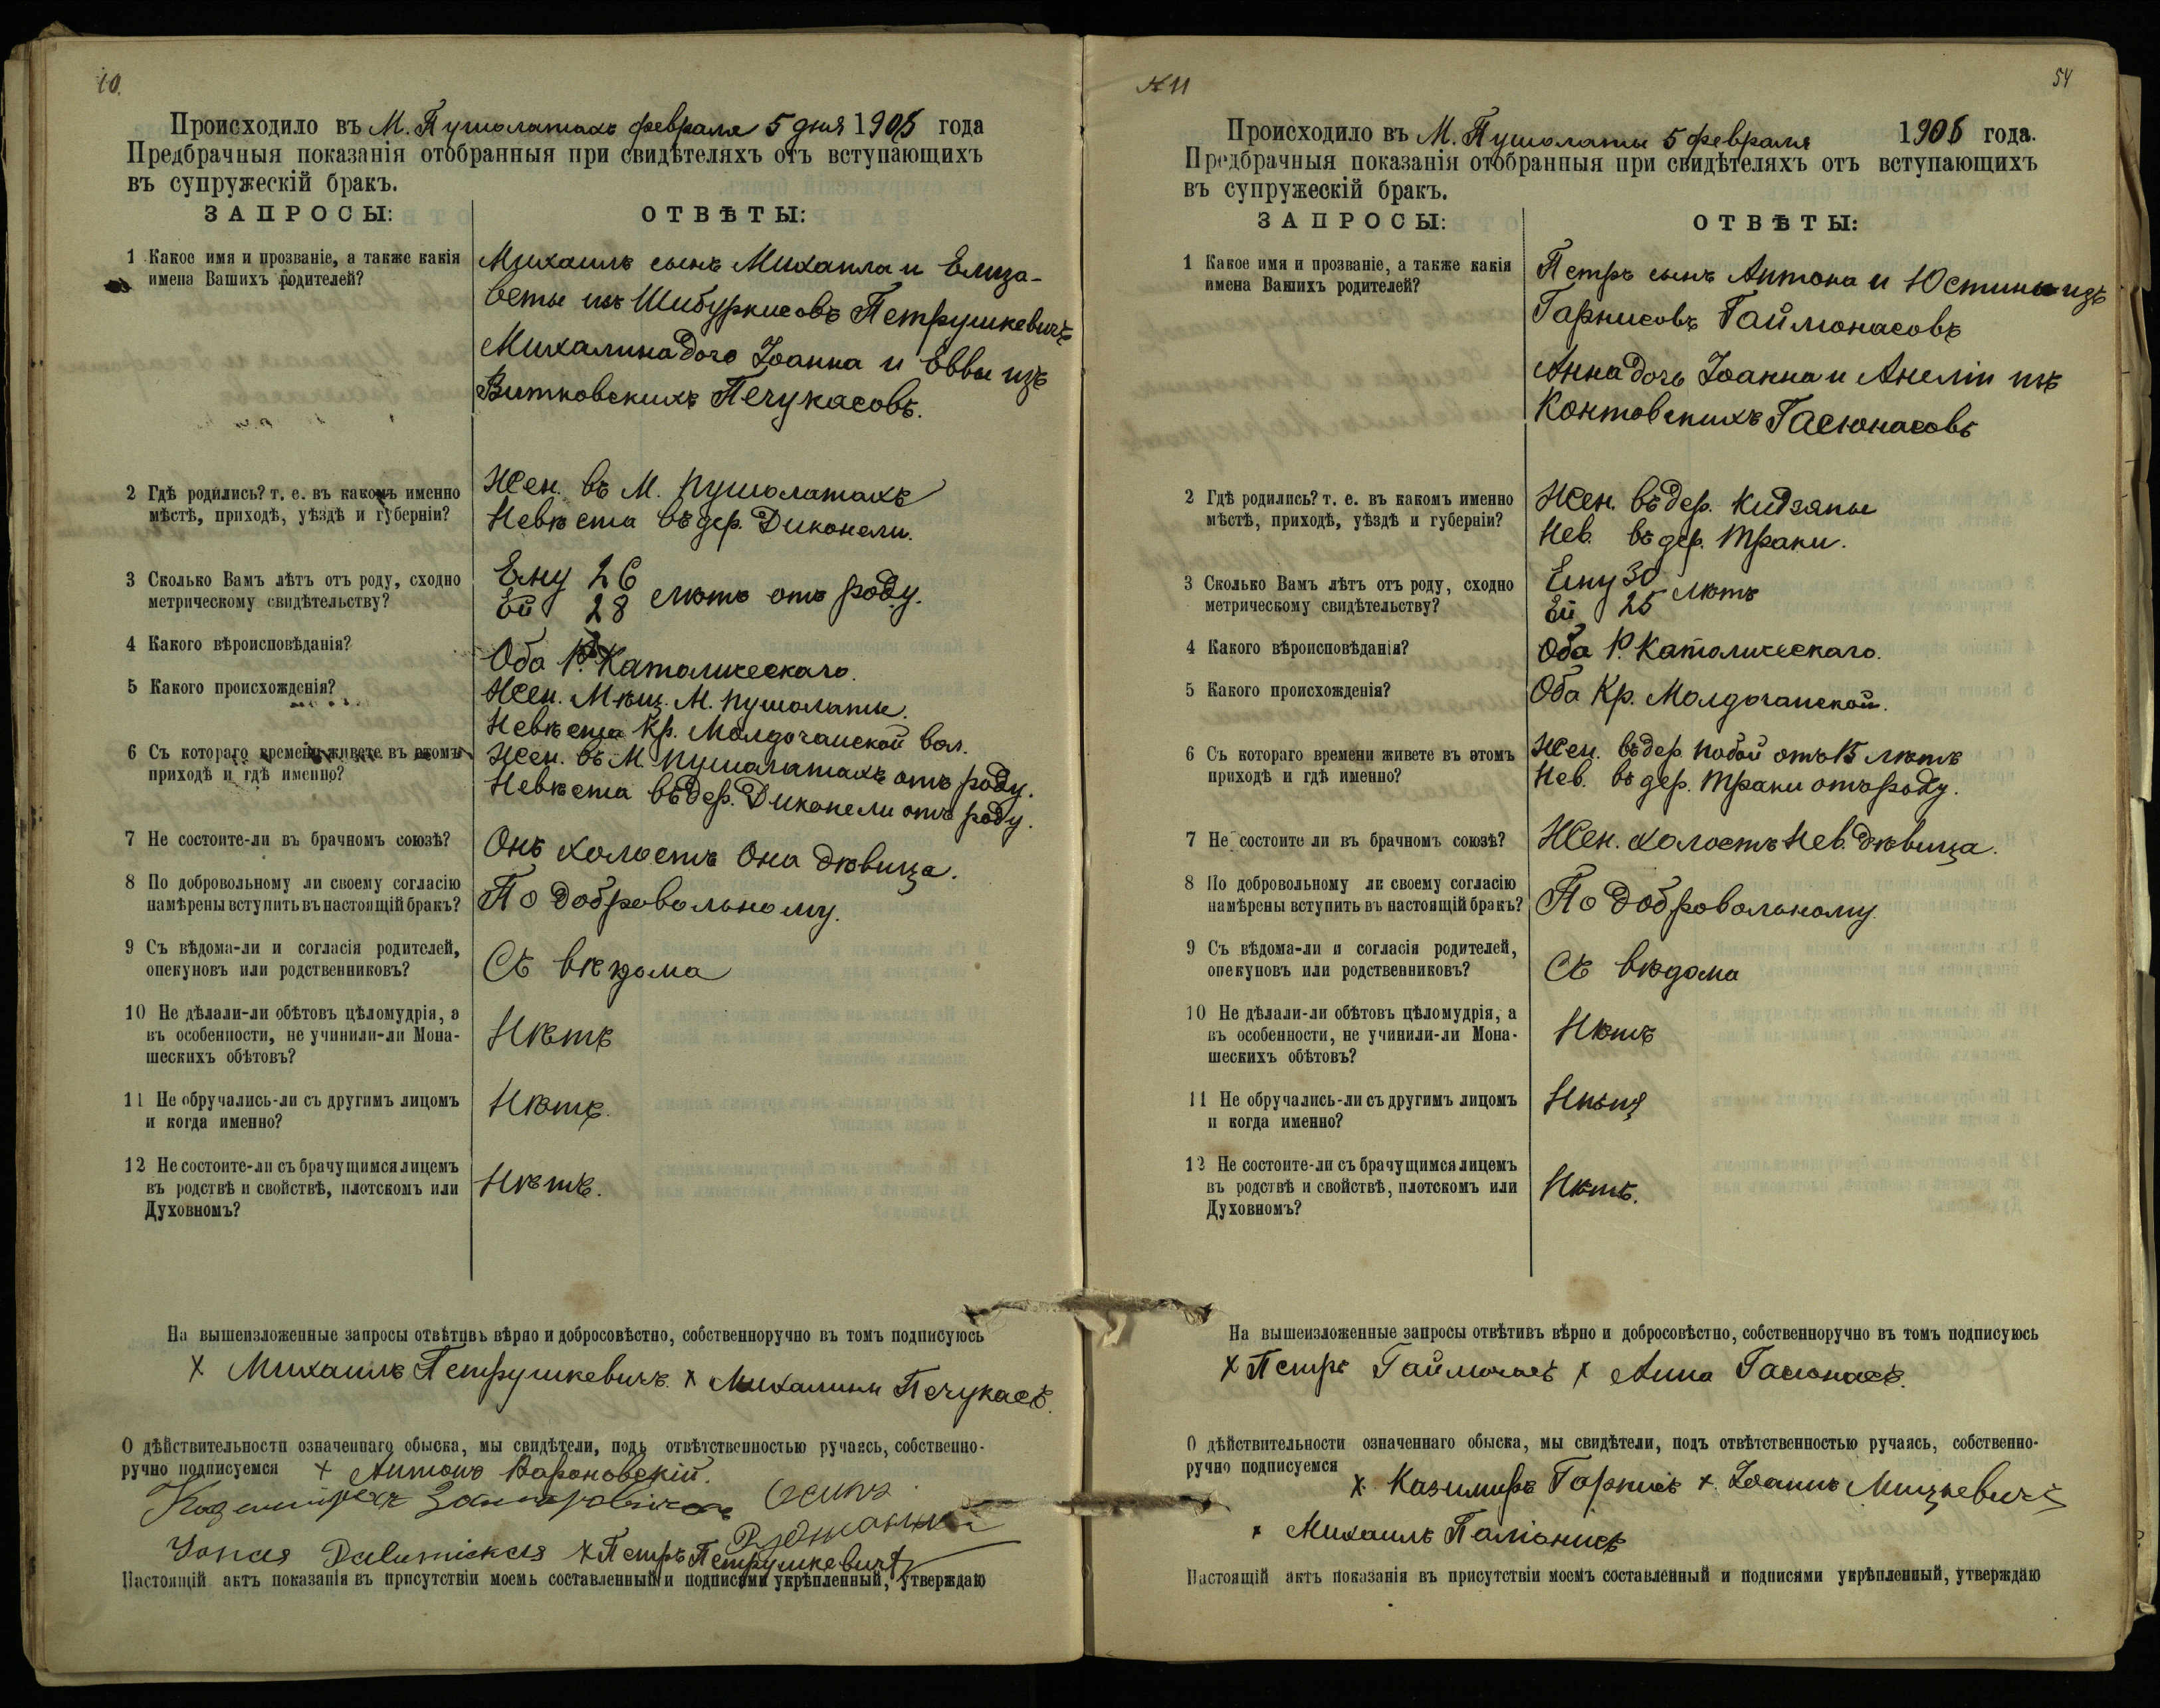 10.
Происходило въ М. Пушолатахъ февраля 5 дня 1905 года
Предбрачныя показанія отобранныя при свидѣтеляхъ отъ вступающихъ
въ супружескій бракъ.
ЗАПРОСЫ:
ОТВѢТЫ:
1 Какое имя и прозваніе, а также какія
имена Вашихъ родителей?
Михаилъ сынъ Михаила и Елиза-
веты изъ Шибуркисовъ Петрушкевичъ
Михалина дочь Іоанна и Еввы изъ
Витковскихъ Печукасовъ.
2 Гдѣ родились? т. е. въ какомъ именно
мѣстѣ, приходѣ, уѣздѣ и губерніи?
Жен. въ М. Пушолатахъ
Невѣста въ дер. Диконели.
3 Сколько Вамъ лѣтъ отъ роду, сходно
метрическому свидѣтельству?
Ему 26
Ей 28 лѣтъ отъ роду.
4 Какого вѣроисповѣданія?
Оба Р. Католическаго.
5 Какого происхожденія?
Жен. Мѣщ. М. Пушолаты.
Невѣста Кр. Молдочанской вол.
6 Съ котораго времени живете въ этомъ
приходѣ и гдѣ именно?
Жен. въ М. Пушолатахъ отъ роду.
Невѣста въ дер. Диконели отъ роду.
7 Не состоите-ли въ брачномъ союзѣ?
Онъ холостъ Она дѣвица.
8 По добровольному ли своему согласію
намѣрены вступить въ настоящій бракъ?
По добровольному.
9 Съ вѣдома-ли и согласія родителей,
опекуновъ или родственниковъ?
Съ вѣдома
10 Не дѣлали-ли обѣтовъ цѣломудрія, а
въ особенности, не учинили-ли Мона-
шескихъ обѣтовъ?
Нѣтъ
11 Не обручались-ли съ другимъ лицомъ
и когда именно?
Нѣтъ.
12 Не состоите-ли съ брачущимся лицемъ
въ родствѣ и свойствѣ, плотскомъ или
Духовномъ?
Нѣтъ.
На вышеизложенные запросы отвѣтивъ вѣрно и добросовѣстно, собственноручно въ томъ подписуюсь
х Михаилъ Петрушкевичъ. х Михалина Печукасъ.
О дѣйствительности означеннаго обыска, мы свидѣтели, подъ отвѣтственностью ручаясь, собственно-
ручно подписуемся + Антонъ Вароновскій.
Осипъ
х Петръ Петрушкевичъ
Настоящій актъ показанія въ присутствіи моемъ составленный и подписями укрѣпленный, утверждаю
№ 11
54
Происходило въ М. Пушолаты 5 февраля 1905 года.
Предбрачныя показанія отобранныя при свидѣтеляхъ отъ вступающихъ
въ супружескій бракъ.
ЗАПРОСЫ:
ОТВѢТЫ:
1 Какое имя и прозваніе, а также какія
имена Вашихъ родителей?
Петръ сынъ Антона и Юстины изъ
Гарнисовъ Гаймонасовъ
Анна дочь Іоанна и Анеліи изъ
Контовскихъ Гасюнасовъ
2 Гдѣ родились? т. е. въ какомъ именно
мѣстѣ, приходѣ, уѣздѣ и губерніи?
Жен. въ дер. Кидзяны
Нев. въ дер. Траки.
3 Сколько Вамъ лѣтъ отъ роду, сходно
метрическому свидѣтельству?
Ему 30 лѣтъ
Ей 25
4 Какого вѣроисповѣданія?
Оба Р. Католическаго.
5 Какого происхожденія?
Оба Кр. Молдочанской.
6 Съ котораго времени живете въ этомъ
приходѣ и гдѣ именно?
Жен. въ дер. отъ 15 лѣтъ
Нев. въ дер. Траки отъ роду.
7 Не состоите ли въ брачномъ союзѣ?
Жен. холостъ Нев. дѣвица.
8 По добровольному ли своему согласію
намѣрены вступить въ настоящій бракъ?
По добровольному
9 Съ вѣдома-ли и согласія родителей,
опекуновъ или родственниковъ?
Съ вѣдома
10 Не дѣлали-ли обѣтовъ цѣломудрія, а
въ особенности, не учинили-ли Мона-
шескихъ обѣтовъ?
Нѣтъ
11 Не обручались-ли съ другимъ лицомъ
и когда именно?
Нѣтъ
12 Не состоите-ли съ брачущимся лицемъ
въ родствѣ и свойствѣ, плотскомъ или
Духовномъ?
Нѣтъ.
На вышеизложенные запросы отвѣтивъ вѣрно и добросовѣстно, собственноручно въ томъ подписуюсь
х Петръ Гаймонасъ х Анна Гасюнасъ.
О дѣйствительности означеннаго обыска, мы свидѣтели, подъ отвѣтственностью ручаясь, собственно-
ручно подписуемся
х Казимиръ Гарнисъ х Іоаннъ Мицкевичъ
х Михаилъ Паліонисъ
Настоящій актъ показанія въ присутствіи моемъ составленный и подписями укрѣпленный, утверждаю